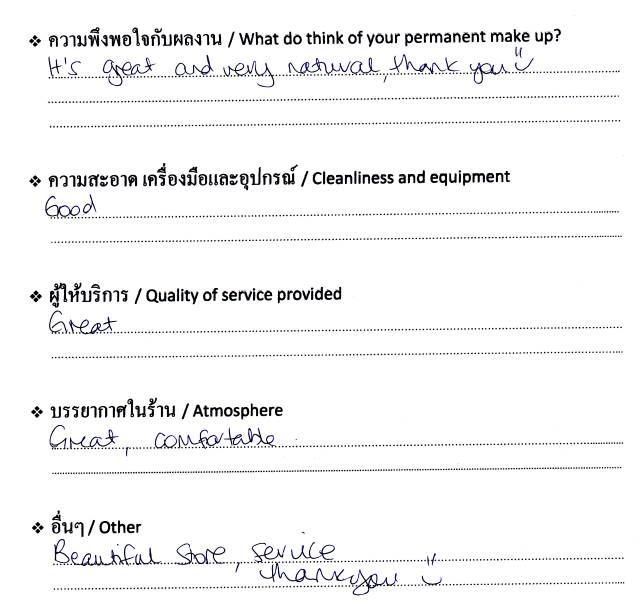 ❖ ความพึงพอใจกับผลงาน / What do think of your permanent make up?
It's great and very natural, thank you ü
❖ ความสะอาด เครื่องมือและอุปกรณ์ / Cleanliness and equipment
Good
❖ ผู้ให้บริการ / Quality of service provided
Great
❖ บรรยากาศในร้าน / Atmosphere
Great, comfortable
❖ อื่นๆ / Other
Beautiful store, service
thank you ü